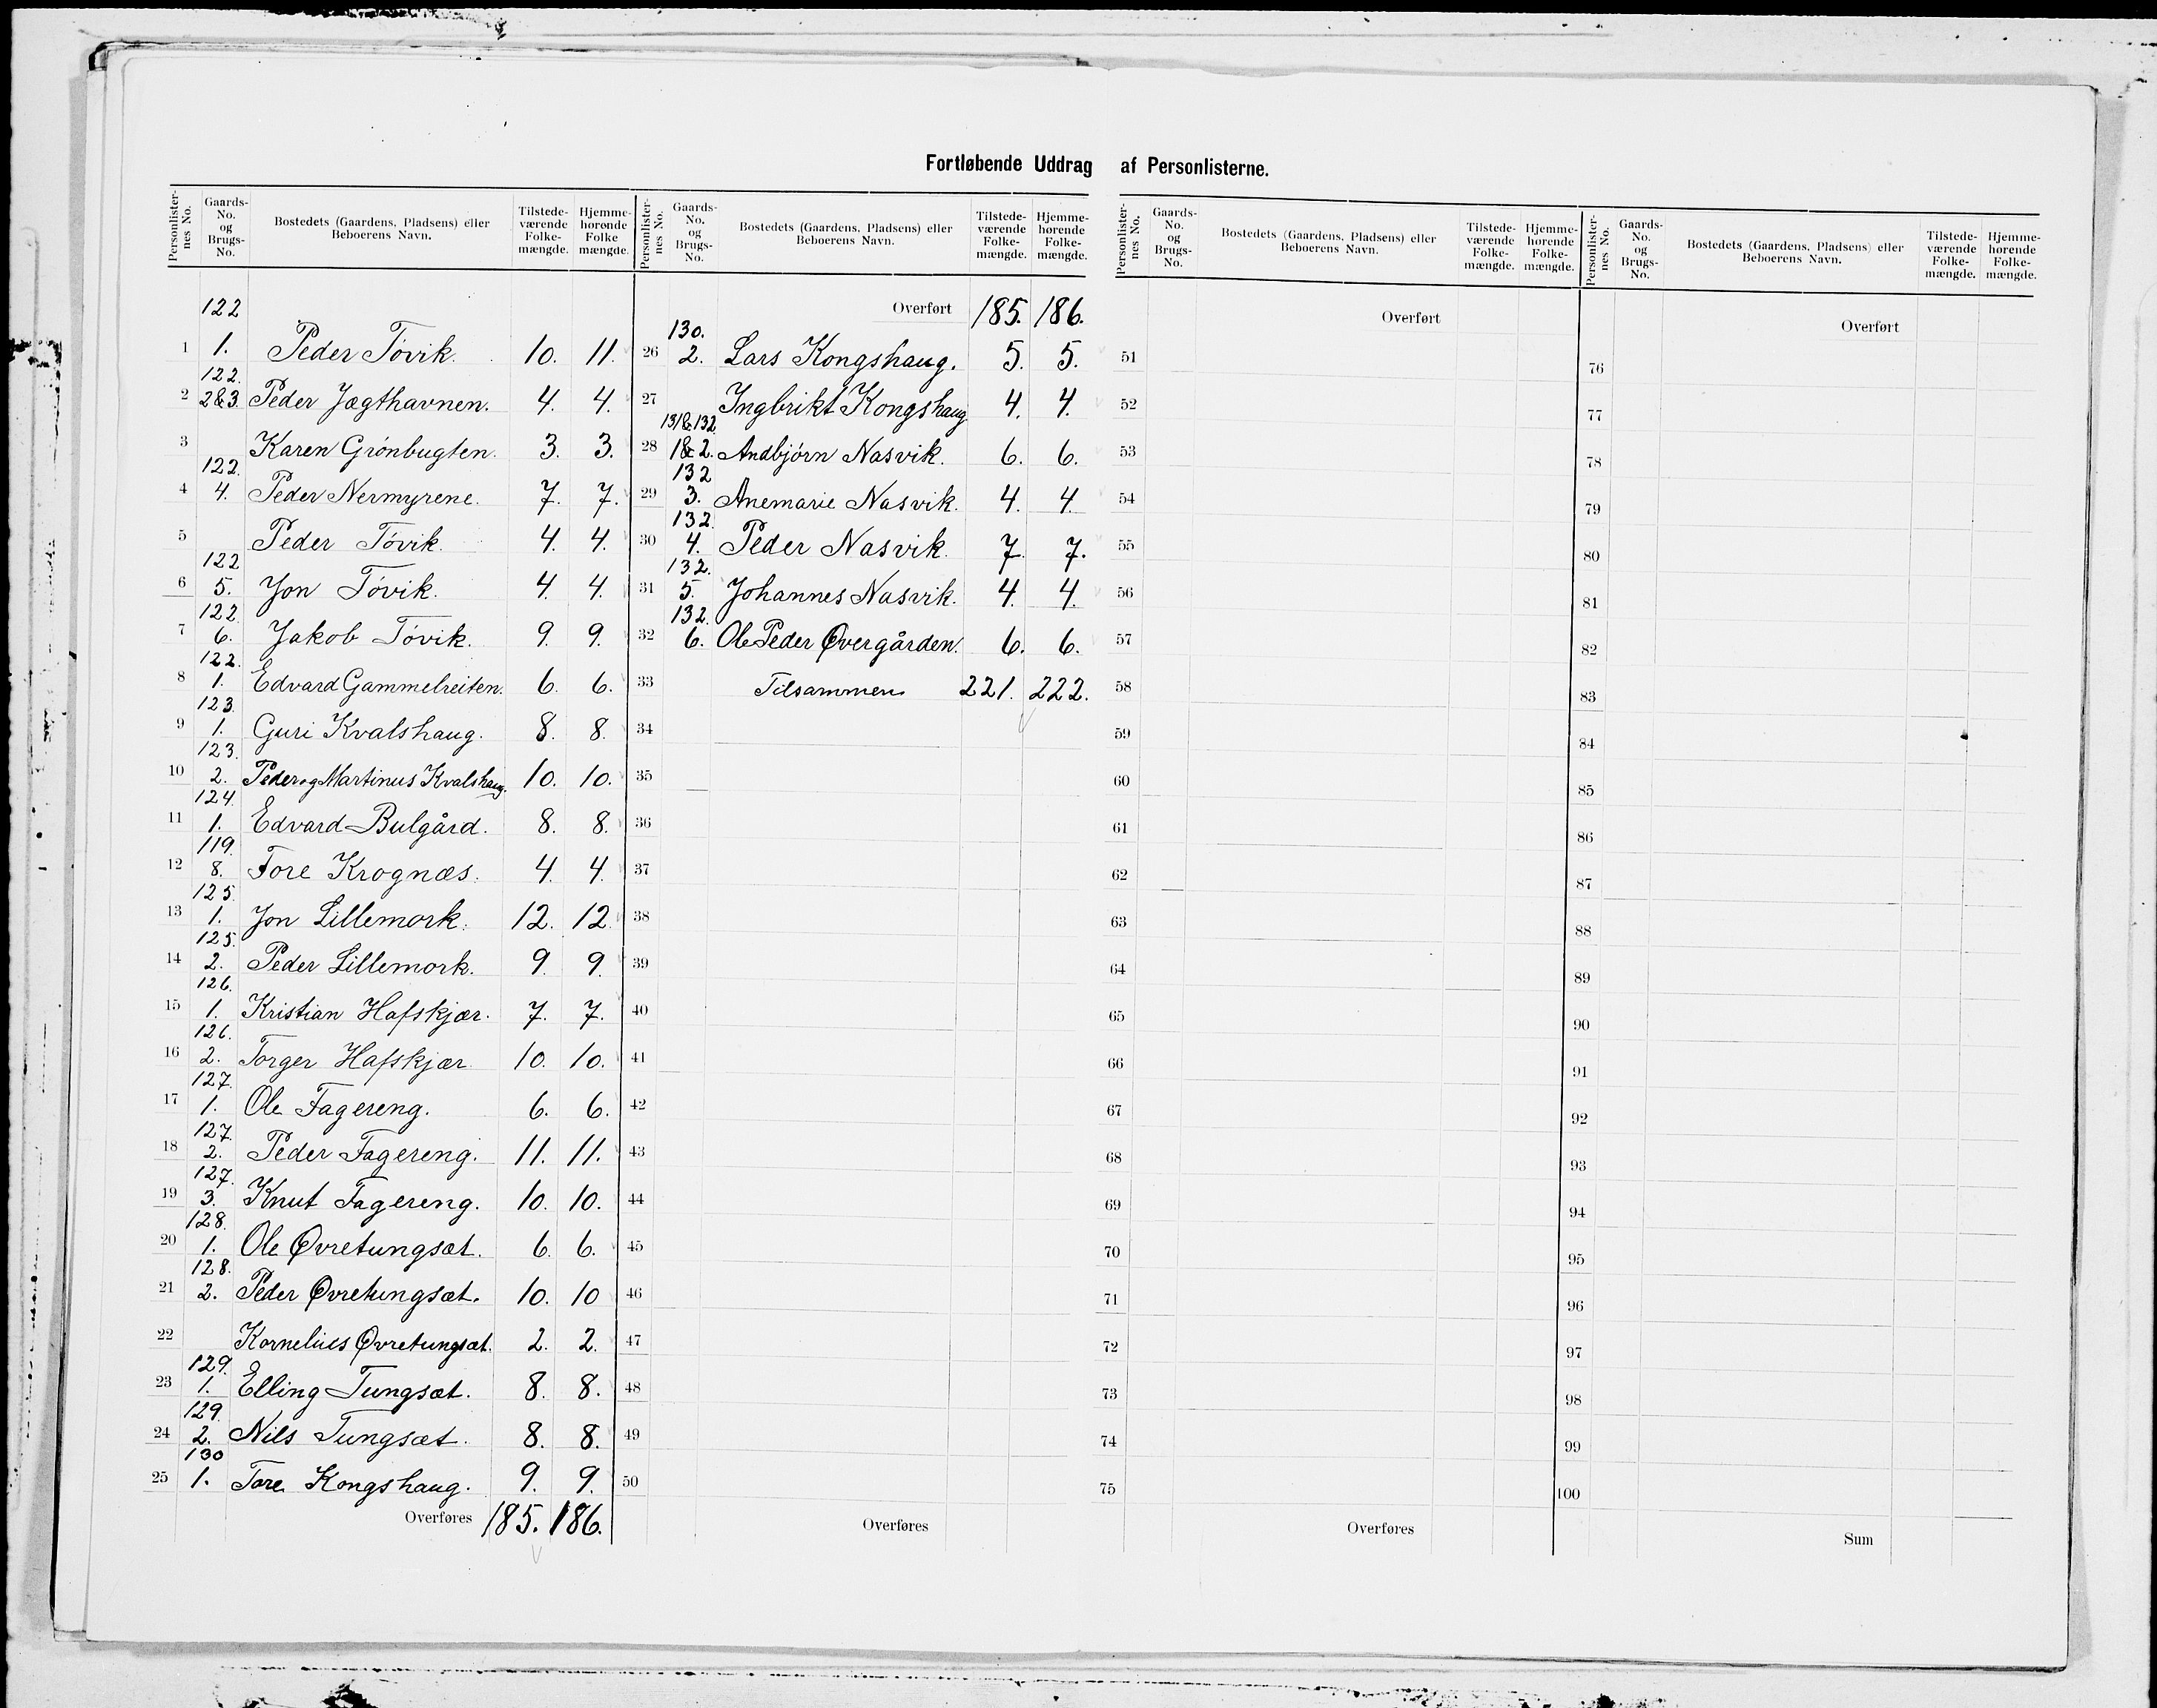 Fortløbende Uddrag af Personlisterne.
Personlisternes No. Gaards-No. og Brugs-No. Bostedets (Gaardens, Pladsens) eller Beboerens Navn. Tilstedeværende Folkemængde. Hjemmehørende Folkemængde.
122
1 1. Peder Tövik. 10. 11.
122.
2 2&3. Peder Jægthavnen. 4. 4.
3 Karen Grönbugten. 3. 3.
122.
4 4. Peder Nermyrene. 7. 7.
5 Peder Tövik. 4. 4.
122
6 5. Jon Tövik. 4. 4.
122.
7 6. Jakob Tövik. 9. 9.
122.
8 1. Edvard Gammelreiten. 6. 6.
123.
9 1. Guri Kvalshaug. 8. 8.
123.
10 2. Peder og Martinus Kvalshaug. 10. 10.
124.
11 1. Edvard Bulgård. 8. 8.
119.
12 8. Tore Krognæs. 4. 4.
125.
13 1. Jon Lillemork. 12. 12.
125.
14 2. Peder Lillemork. 9. 9.
126.
15 1. Kristian Hafskjær. 7. 7.
126.
16 2. Torger Hafskjær 10. 10.
127.
17 1. Ole Fagereng. 6. 6.
127.
18 2. Peder Fagereng. 11. 11.
127.
19 3. Knut Fagereng. 10. 10.
128.
20 1. Ole Øvretungsæt. 6. 6.
128.
21 2. Peder Øvretungsæt. 10. 10
22 Kornelius Øvretungsæt. 2. 2.
129.
23 1. Elling Tungsæt. 8. 8.
129.
24 2. Nils Tungsæt. 8. 8.
130
25 1. Tore Kongshaug. 9. 9.
Overføres 185. 186.
Personlisternes No. Gaards-No. og Brugs-No. Bostedets (Gaardens, Pladsens) eller Beboerens Navn. Tilstedeværende Folkemængde. Hjemmehørende Folkemængde.
Overført 185. 186.
130.
26 2. Lars Kongshaug. 5. 5.
27 Ingbrikt Kongshaug 4. 4.
131&132.
28 1&2. Andbjörn Nasvik. 6. 6.
132
29 3. Anemarie Nasvik. 4. 4
132.
30 4. Peder Nasvik. 7. 7.
132.
31 5. Johannes Nasvik. 4. 4.
132.
32 6. Ole Peder Øvergården. 6. 6.
33 Tilsammen 221. 222.
34
35
36
37
38
39
40
41
42
43
44
45
46
47
48
49
50
Overføres
Personlisternes No. Gaards-No. og Brugs-No. Bostedets (Gaardens, Pladsens) eller Beboerens Navn. Tilstedeværende Folkemængde. Hjemmehørende Folkemængde.
Overført
51
52
53
54
55
56
57
58
59
60
61
62
63
64
65
66
67
68
69
70
71
72
73
74
75
Overføres
Personlisternes No. Gaards-No. og Brugs-No. Bostedets (Gaardens, Pladsens) eller Beboerens Navn. Tilstedeværende Folkemængde. Hjemmehørende Folkemængde.
Overført
76
77
78
79
80
81
82
83
84
85
86
87
88
89
90
91
92
93
94
95
96
97
98
99
100
Sum